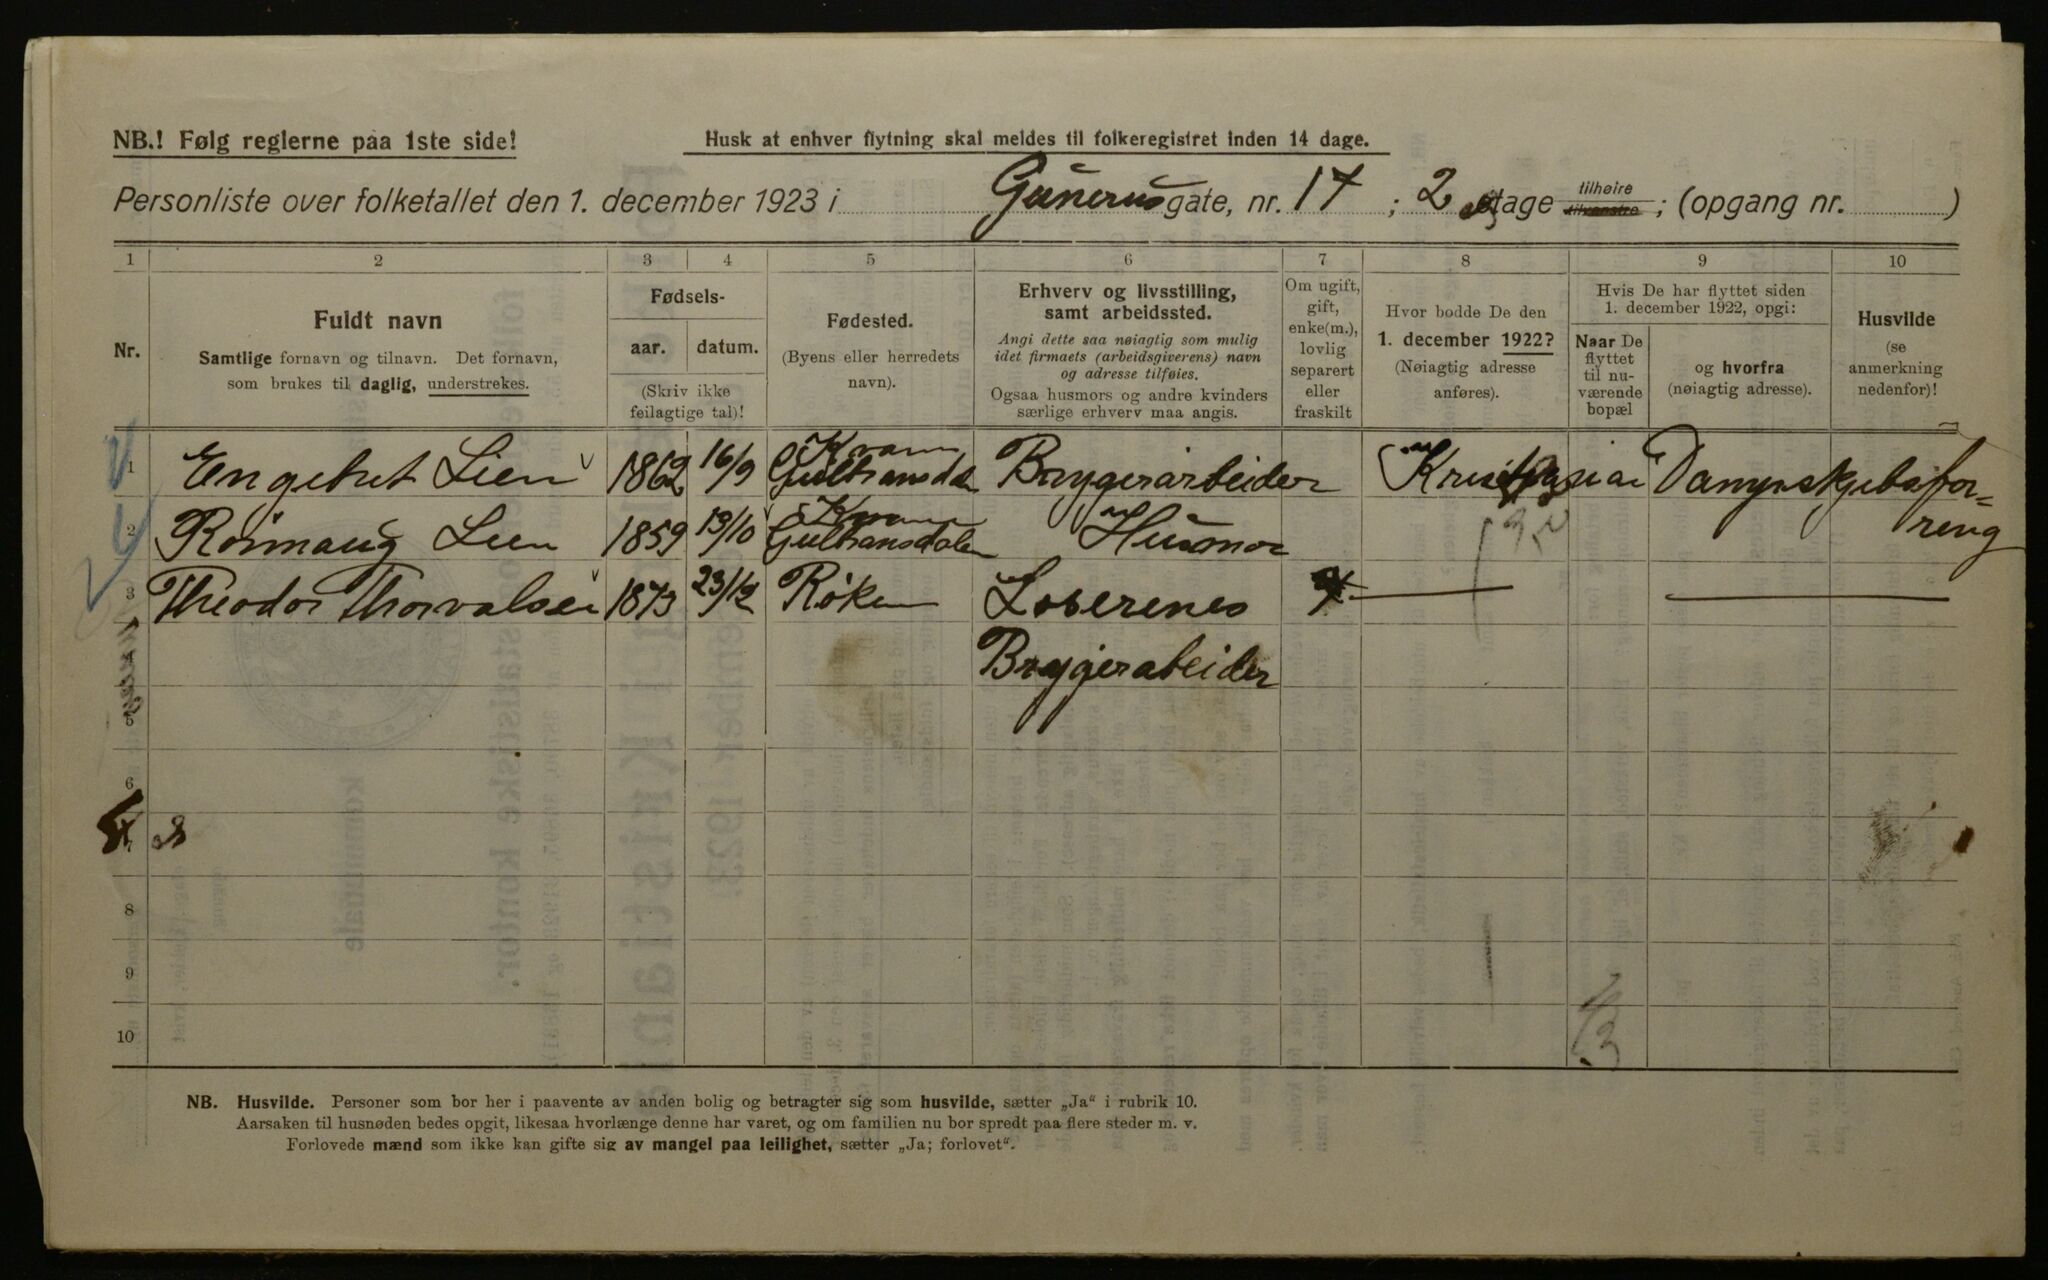 NB.! Følg reglerne paa 1ste side!
Husk at enhver flytning skal meldes til folkeregistret inden 14 dage.
Personliste over folketallet den 1. december 1923 i Gunerus gate, nr. 17; 2 etage tilhøire tilvenstre; (opgang nr. )
1 2 3 4 5 6 7 8 9 10
Nr.
Fuldt navn
Samtlige fornavn og tilnavn. Det fornavn,
som brukes til daglig, understrekes.
Fødsels-
aar. datum.
(Skriv ikke
feilagtige tal)!
Fødested.
(Byens eller herredets
navn).
Erhverv og livsstilling,
samt arbeidssted.
Angi dette saa nøiagtig som mulig
idet firmaets (arbeidsgiverens) navn
og adresse tilføies.
Ogsaa husmors og andre kvinders
særlige erhverv maa angis.
Om ugift,
gift,
enke(m.),
lovlig
separert
eller
fraskilt
Hvor bodde De den
1. december 1922?
(Nøiagtig adresse
anføres).
Hvis De har flyttet siden
1. december 1922, opgi:
Naar De
flyttet
til nu-
værende
bopæl
og hvorfra
(nøiagtig adresse).
Husvilde
(se
anmerkning
nedenfor)!
1 Engebret Lien 1862 16/9 Kvam Gulbransdalen Bryggerarbeider
2 Lien 1859 13/10 Kvam Gulbransdalen Husmor
3 Theodor Thorvalsen 1873 23/12 Røken Loserenes
4 Bryggerabeider
5
6
8
9
10
NB. Husvilde. Personer som bor her i paavente av anden bolig og betragter sig som husvilde, sætter „Ja“ i rubrik 10.
Aarsaken til husnøden bedes opgit, likesaa hvorlænge denne har varet, og om familien nu bor spredt paa flere steder m. v.
Forlovede mænd som ikke kan gifte sig av mangel paa leilighet, sætter „Ja; forlovet“.